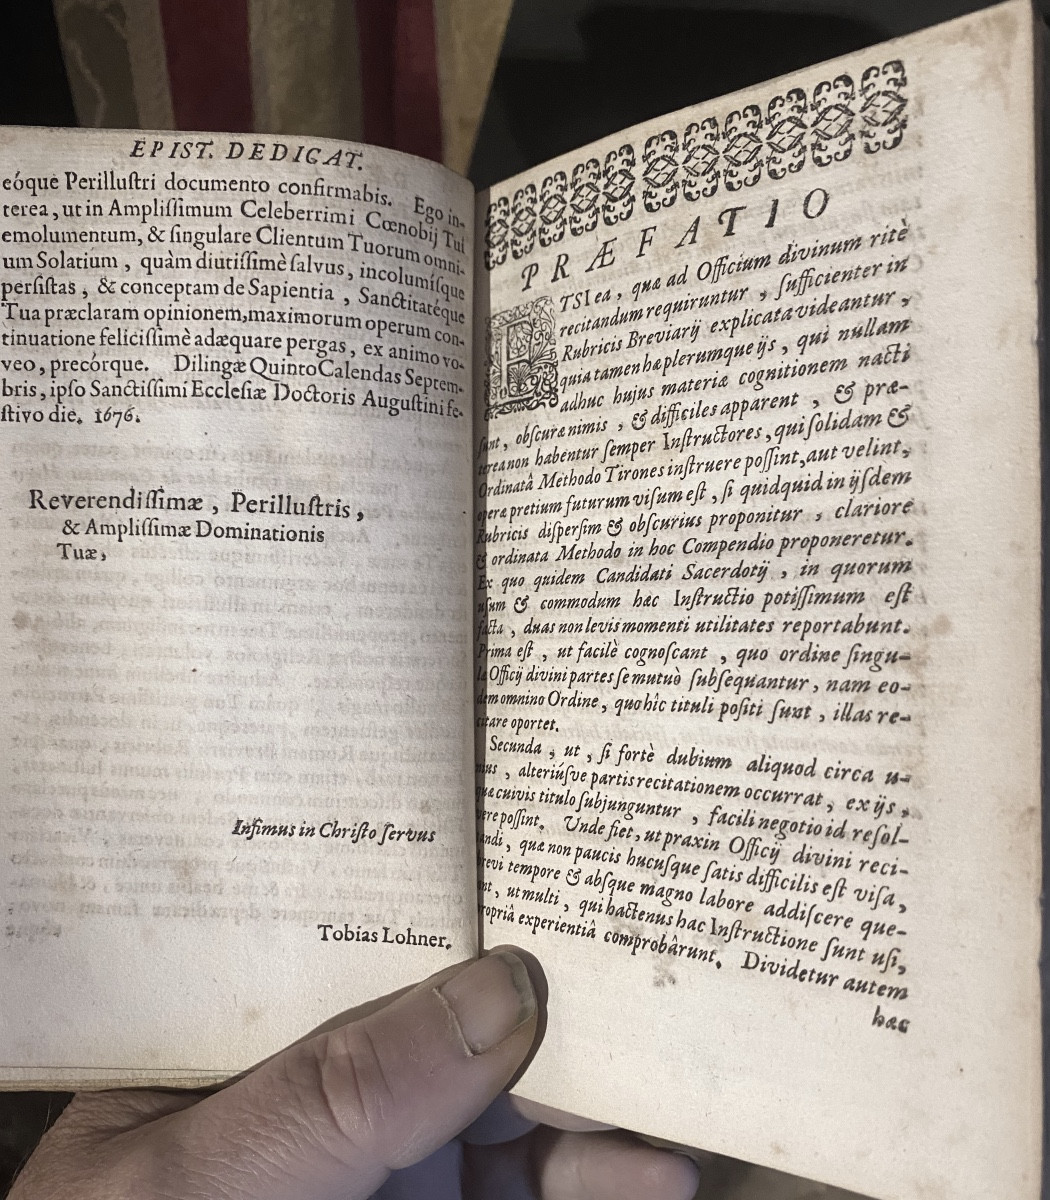 EPIST. DEDICAT.
eóque Perilluſtri documento confirmabis. Ego in-
terea, ut in Ampliſſimum Celeberrimi Cœnobij Tui
emolumentum, & ſingulare Clientum Tuorum omni-
um Solatium , quàm diutiſſimè ſalvus, incolumiſque
perſiſtas , & conceptam de Sapientia , Sanctitatéque
Tua præclaram opinionem, maximorum operum con-
tinuatione feliciſſimè adæquare pergas, ex animo vo-
veo, precórque. Dilingæ Quinto Calendas Septem-
bris, ipſo Sanctiſſimi Eccleſiæ Doctoris Auguſtini fe-
ſtivo die. 1676.
Reverendiſſimæ , Perilluſtris ,
& Ampliſſimæ Dominationis
Tuæ,
Infimus in Chriſto ſervus
Tobias Lohner.
PRÆFATIO
ETSI ea, quæ ad Officium divinum ritè
recitandum requiruntur , ſufficienter in
Rubricis Breviarij explicata videantur ,
quia tamen hæ plerumque ijs , qui nullam
adhuc hujus materiæ cognitionem nacti
ſunt, obſcuræ nimis , & difficiles apparent , & præ-
terea non habentur ſemper Inſtructores, qui ſolidam &
Ordinatâ Methodo Tirones inſtruere poſſint, aut velint,
operæ pretium futurum viſum eſt , ſi quidquid in ijſdem
Rubricis diſperſim & obſcurius proponitur , clariore
& ordinata Methodo in hoc Compendio proponeretur.
Ex quo quidem Candidati Sacerdotij , in quorum
uſum & commodum hæc Inſtructio potiſſimum eſt
facta , duas non levis momenti utilitates reportabunt.
Prima eſt , ut facilè cognoſcant , quo ordine ſingu-
læ Officij divini partes ſe mutuò ſubſequantur , nam eo-
dem omnino Ordine, quo hîc tituli poſiti ſunt , illas re-
citare oportet.
Secunda , ut , ſi fortè dubium aliquod circa u-
nius , alteriúſve partis recitationem occurrat, ex ijs ,
quæ cuivis titulo ſubjunguntur , facili negotio id reſol-
vere poſſint. Unde fiet, ut praxin Officij divini reci-
tandi, quæ non paucis hucuſque ſatis difficilis eſt viſa,
brevi tempore & abſque magno labore addiſcere que-
ant, ut multi , qui hactenus hac Inſtructione ſunt uſi,
propriâ experientiâ comprobârunt. Dividetur autem
hæc